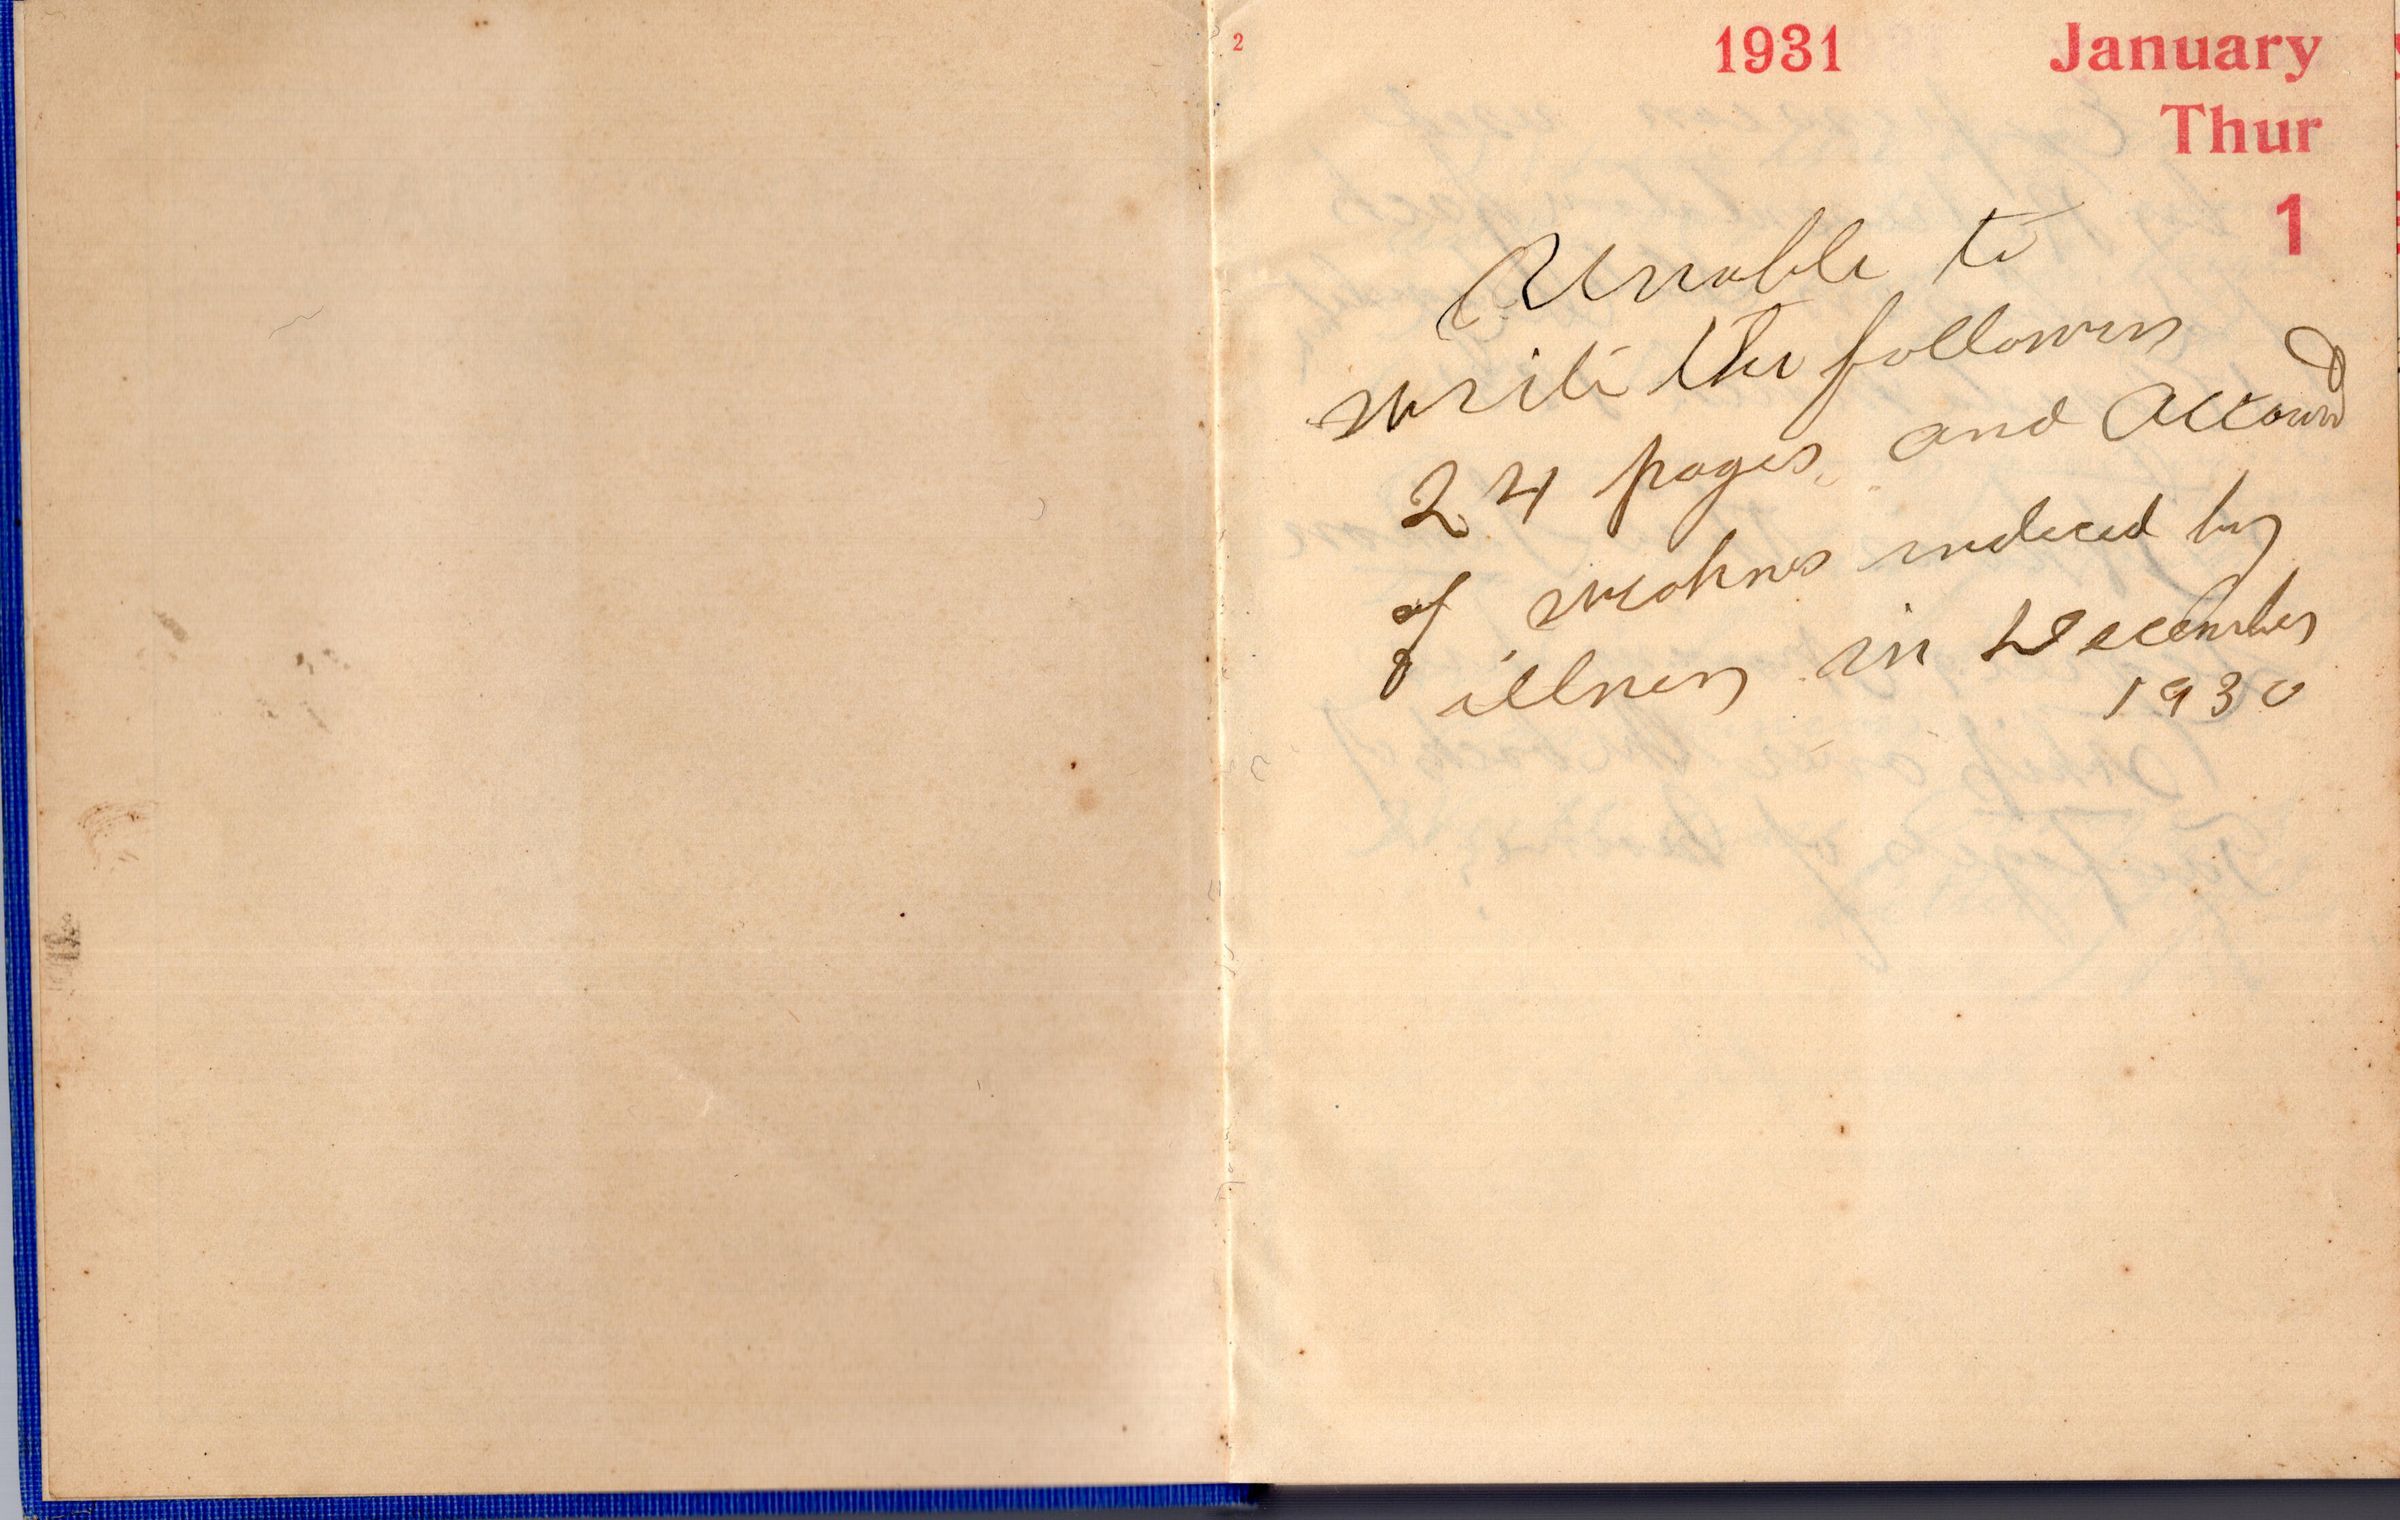 2
1931 January
Thur
1
Unable to
write the followin
24 pages, and account
of weakness induced by
illness in December
1930